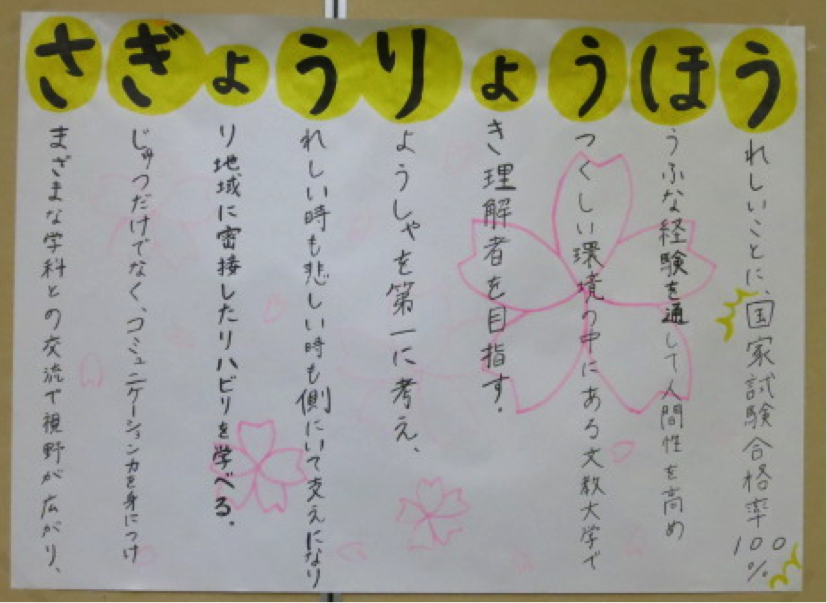 さまざまな学科との交流で視野が広がり、
ぎじゅつだけでなく、コミュニケーション力を身につけ
ょり地域に密接したリハビリを学べる。
うれしい時も悲しい時も側にいて支えになり
りようしゃを第一に考え、
ょき理解者を目指す。
うつくしい環境の中にある文教大学で
ほうふな経験を通して人間性を高め
うれしいことに、国家試験合格率100%